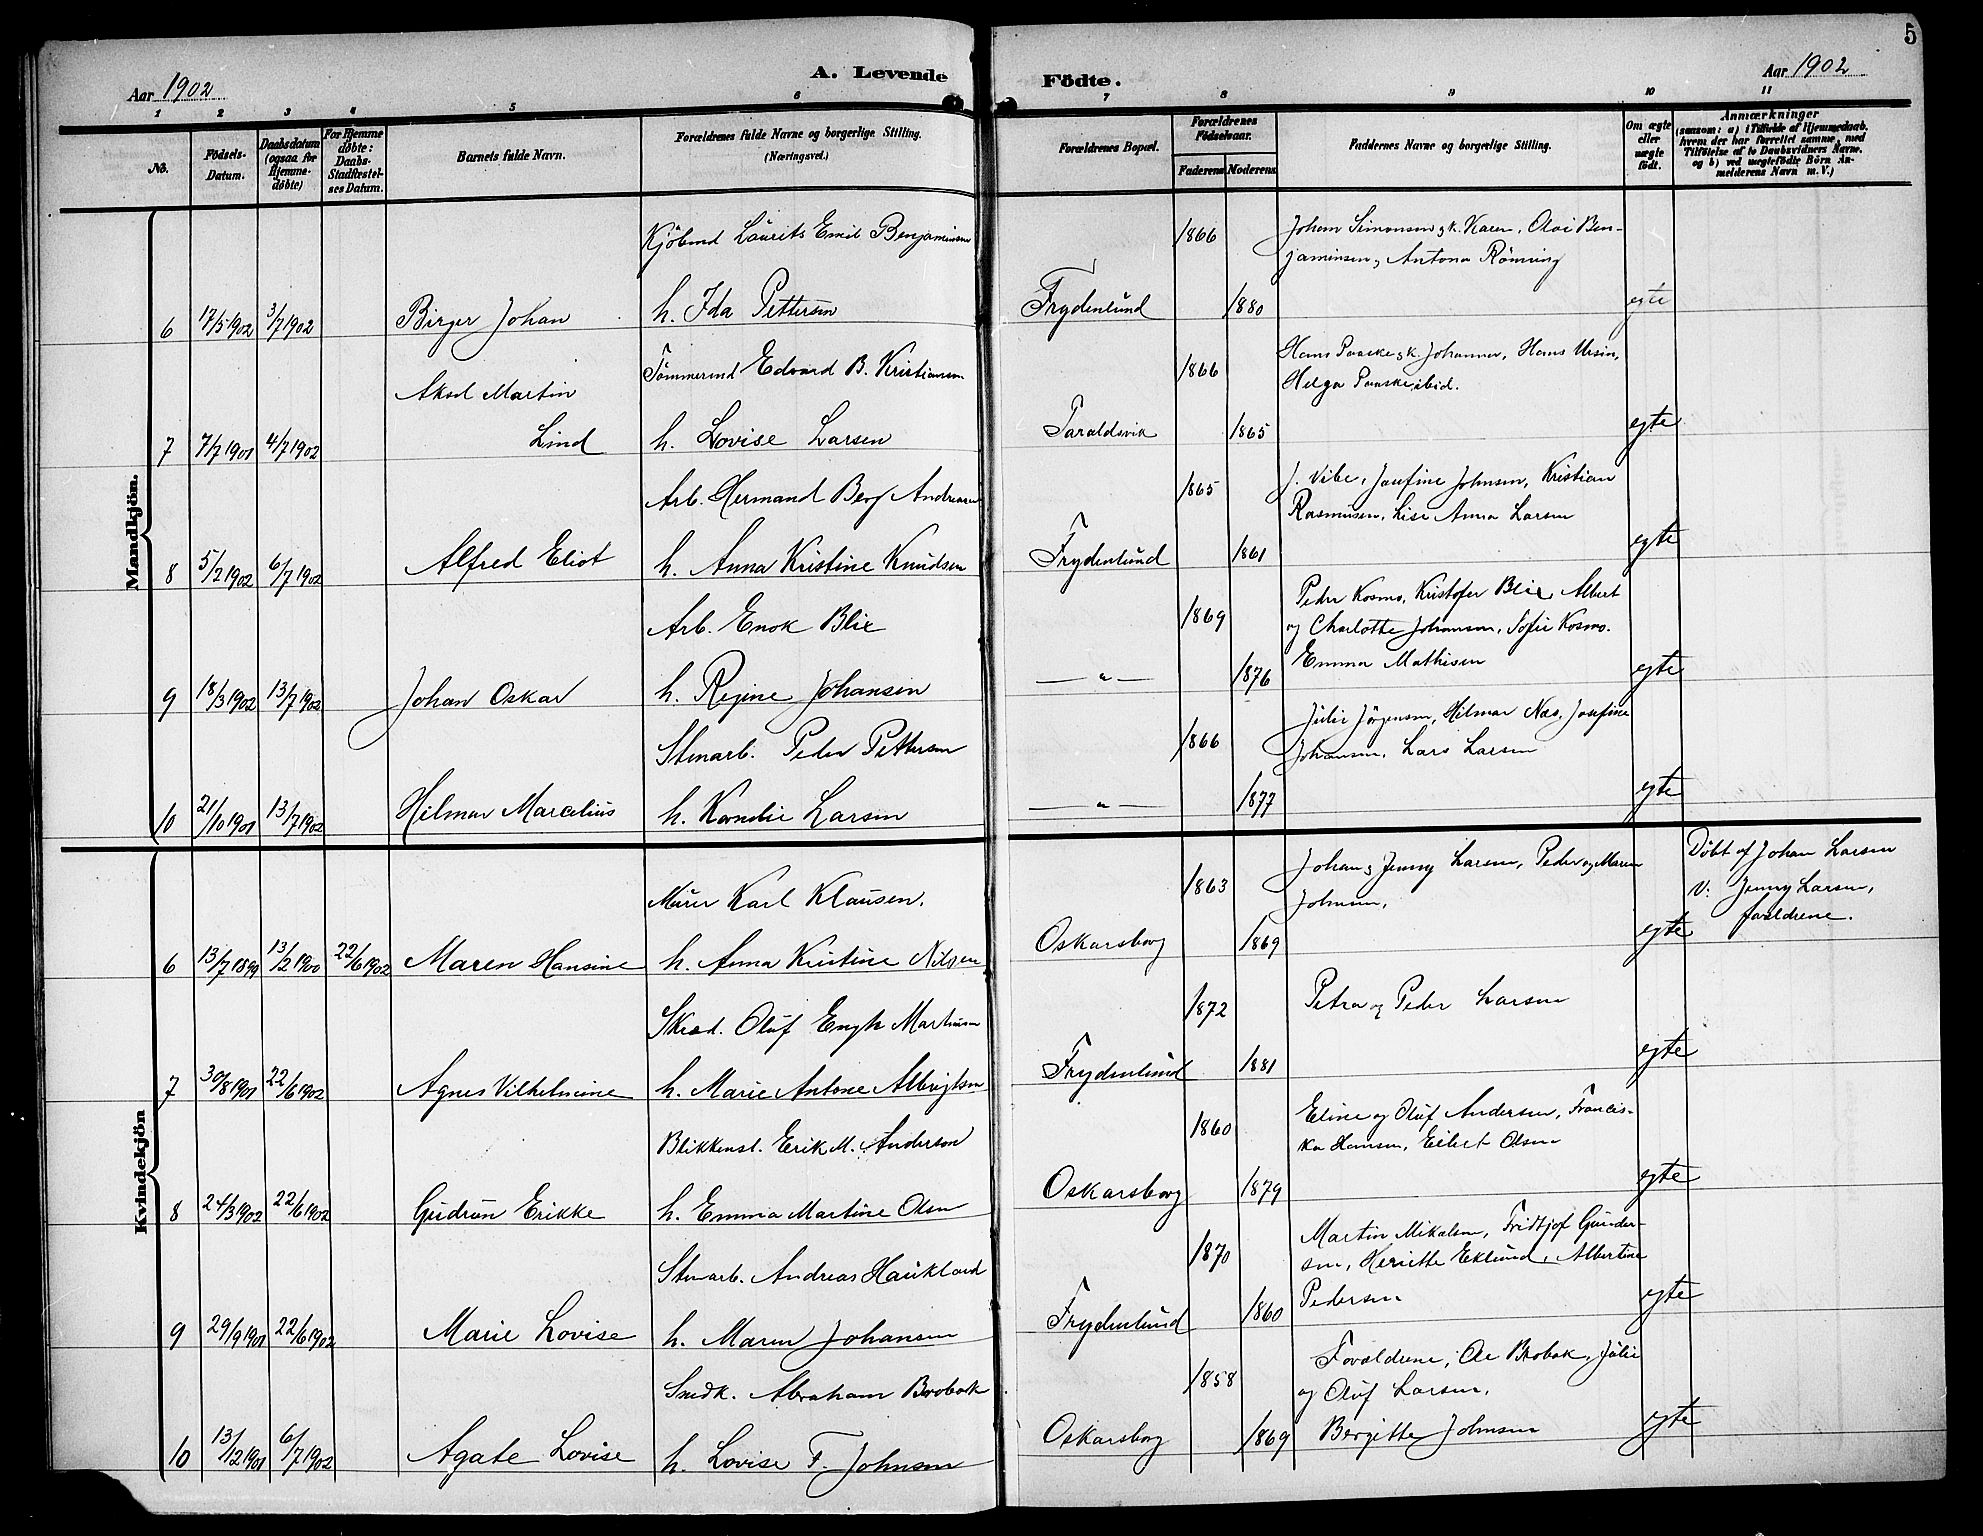 5
Aar 1902
A. Levende
Födte.
Aar 1902
1 2 3 4 5 6 7 8 9 10 11
No.
Födsels-
Datum.
Daabsdatum
(ogsaa for
Hjemme-
døbte)
For Hjemme
døbte:
Daabs-
Stadfæstel-
ses Datum.
Barnets fulde Navn.
Forældrenes fulde Navne og borgerlige Stilling.
(Næringsvei.)
Forældrenes Bopæl.
Forældrenes
Födselsaar.
Faderens
Moderens
Faddernes Navne og borgerlige Stilling.
Om ægte
eller
uægte
født.
Anmærkninger
(saasom: a) i Tilfælde af Hjemmedaab.
hvem der har forrettet samme, med
Tilföielse af to Daabsvidners Navne.
og b) ved uægtefödte Börn An-
melderens Navn m. V.)
Mandkjön.
Kjöbmd Laurits Emil Benjaminsen
1866
Johan Simonsen og k. Karen, Olai Ben-
jaminsen, Antona Rönning
6 17/5 1902 3/7 1902 Birger Johan h. Ida Pettersen Frydenlund 1880 egte
Tömmermd Edvard B. Kristiansen
1866
Hans Paaske og k. Johanna, Hans Ursin,
Helga Paaske, ibid.
Aksel Martin
7 7/7 1901 4/7 1902 Lind h. Lovise Larsen Taraldsvik 1865 egte
Arb. Hermand Berg Andreasen
1865
J. Vibe, Josefine Johnsen, Kristian
Rasmussen, Lise Anna Larsen
8 5/2 1902 6/7 1902 Alfred Eliot h. Anna Kristine Knudsen Frydenlund 1861 egte
Arb. Enok Blix
1869
Peder Kosmo, Kristofer Blix, Albert
og Charlotte Johansen, Sofie Kosmo.
Emma Mathisen
9 18/3 1902 13/7 1902 Johan Oskar h. Regine Johansen — " — 1876 egte
Stenarb. Peder Pettersen
1866
Julie Jörgensen, Hilmar Næs, Josefine
Johansen, Lars Larsen
10 21/10 1901 13/7 1902 Hilmar Marcelius h. Kornelie Larsen — " — 1877 egte
Kvindekjön
Murer Karl Klausen.
1863
Johan og Jenny Larsen, Peder og Maren
Johnsen,
Döbt af Johan Larsen
V. Jenny Larsen,
forældrene.
6 13/7 1899 13/2 1900 22/6 1902 Maren Hansine h. Anna Kristine Nilsen Oskarsborg 1869 egte
Skræd. Oluf Engh Martinsen
1872
Petra og Peder Larsen
7 30/8 1901 22/6 1902 Agnes Vilhelmine h. Marie Antone Albrigtsen Frydenlund 1881 egte
Blikkensl. Erik M. Anderson
1860
Eline og Oluf Andersen, Francis-
ka Hansen, Eilert Olsen
8 24/3 1902 22/6 1902 Gudrun Erikke h. Emma Martine Olsen Oskarsborg 1879 egte
Stenarb. Andreas Haukland
1870
Martin Mikalsen, Fridtjof Gunder-
sen, Henriette Eklund, Albertine
Pedersen
9 29/9 1901 22/6 1902 Marie Lovise h. Maren Johansen Frydenlund 1860 egte
Snedk. Abraham Brobak
1858
Forældrene, Ole Brobak, Julie
og Oluf Larsen,
Bergitte Johnsen
10 13/12 1901 6/7 1902 Agate Lovise h. Lovise F. Johnsen Oskarsborg 1869 egte